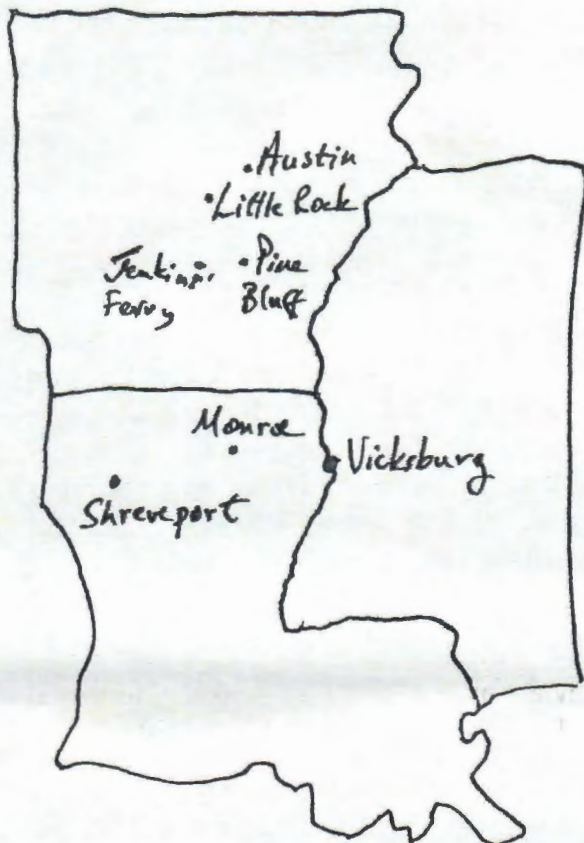 Austin
Little Rock
Jenkins'
Ferry
Pine
Bluff
Monroe
Vicksburg
Shreveport